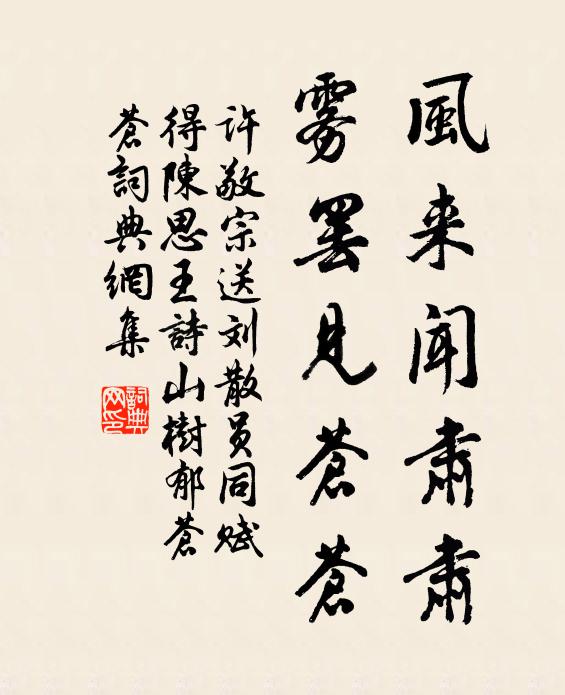 風来闻肅肅
雾罢見蒼蒼
许敬宗送刘散员同赋
得陳思王詩山樹郁蒼
蒼詞典網集
詞典网印